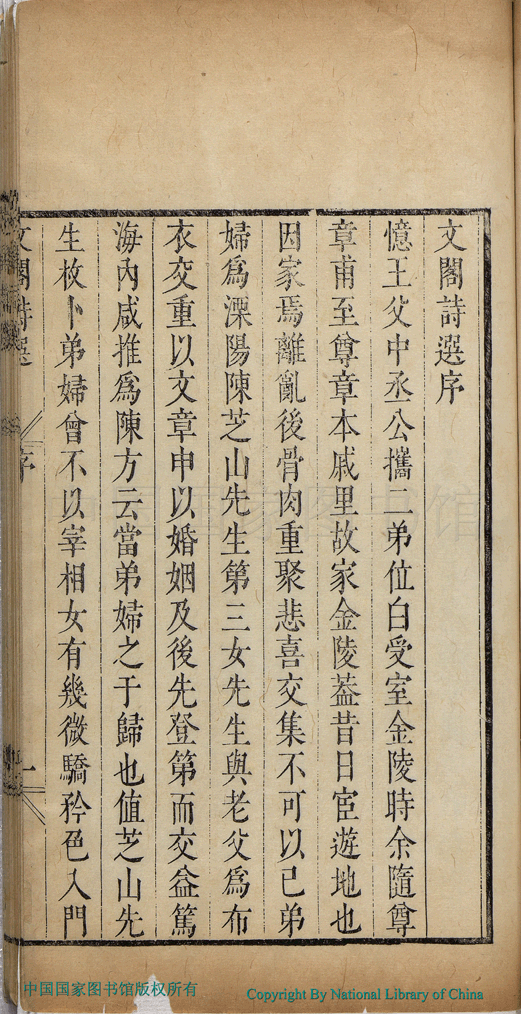 文閣詩選序
憶王父中丞公攜二弟位白受室金陵時余隨尊
章甫至尊章本戚里故家金陵葢昔日宦遊地也
因家焉離亂後骨肉重聚悲喜交集不可以已弟
婦爲溧陽陳芝山先生第三女先生與老父爲布
衣交重以文章申以婚姻及後先登第而交益篤
海內咸推爲陳方云當弟婦之于歸也値芝山先
生枚卜弟婦曾不以宰相女有幾微驕矜色入門
文閣詩選
序
一
中国国家图书馆版权所有
Copyright By National Library of China